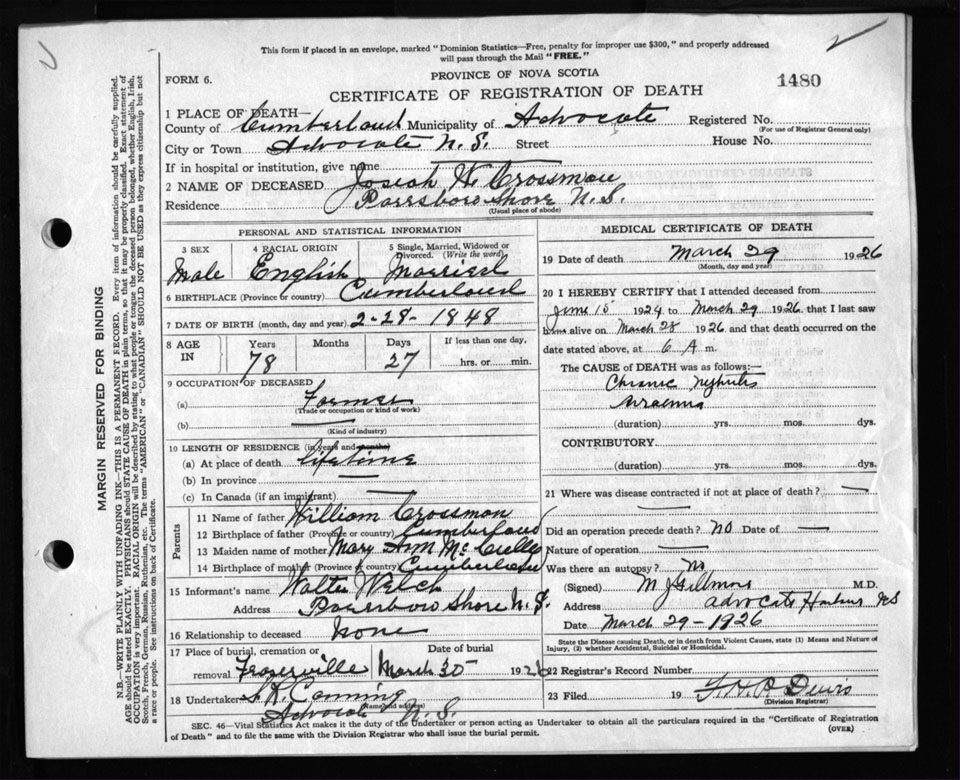 This form if placed in an envelope, marked "Dominion Statistics—Free, penalty for improper use $300," and properly addressed
will pass through the Mail "FREE."
FORM 6.
PROVINCE OF NOVA SCOTIA
1480
CERTIFICATE OF REGISTRATION OF DEATH
1 PLACE OF DEATH—
County of Cumberland Municipality of Advocate Registered No.
(For use of Registrar General only)
City or Town Advocate N.S. Street House No.
If in hospital or institution, give name
2 NAME OF DECEASED Josiah W. Crossman
Residence Parrsboro Shore N.S.
(Usual place of abode)
PERSONAL AND STATISTICAL INFORMATION
3 SEX 4 RACIAL ORIGIN 5 Single, Married, Widowed or Divorced. (Write the word)
Male English Married
6 BIRTHPLACE (Province or country) Cumberland
7 DATE OF BIRTH (month, day and year) 2-28-1848
8 AGE IN Years Months Days If less than one day,
78 27 hrs. or min.
9 OCCUPATION OF DECEASED
(a) Farmer
(Trade or occupation or kind of work)
(b)
(Kind of industry)
10 LENGTH OF RESIDENCE (in years and months)
(a) At place of death lifetime
(b) In province —
(c) In Canada (if an immigrant) —
Parents
11 Name of father William Crossman
12 Birthplace of father (Province or country) Cumberland
13 Maiden name of mother Mary Ann
14 Birthplace of mother (Province or country) Cumberland
15 Informant's name Walter Welch
Address Parrsboro Shore N.S.
16 Relationship to deceased None
17 Place of burial, cremation or removal Date of burial
Fraserville March 30 1926
18 Undertaker Canning
(Name and address)
Advocate N.S.
MEDICAL CERTIFICATE OF DEATH
19 Date of death March 29 1926
(Month, day and year)
20 I HEREBY CERTIFY that I attended deceased from
June 15 1924 to March 29 1926 that I last saw
him alive on March 28 1926 and that death occurred on the
date stated above, at 6 A m.
The CAUSE of DEATH was as follows:—
Chronic Nephritis
Uraemia
(duration) yrs. mos. dys.
CONTRIBUTORY
(duration) yrs. mos. dys.
21 Where was disease contracted if not at place of death? —
Did an operation precede death? no Date of —
Nature of operation —
Was there an autopsy? No
(Signed) M. D.
Address Advocate Harbour NS
Date March 29-1926
State the Disease causing Death, or in death from Violent Causes, state (1) Means and Nature of
Injury, (2) whether Accidental, Suicidal or Homicidal.
22 Registrar's Record Number
23 Filed 19
(Division Registrar)
SEC. 46—Vital Statistics Act makes it the duty of the Undertaker or person acting as Undertaker to obtain all the particulars required in the "Certificate of Registration
of Death" and to file the same with the Division Registrar who shall issue the burial permit.
(OVER)
MARGIN RESERVED FOR BINDING
N.B.—WRITE PLAINLY WITH UNFADING INK—THIS IS A PERMANENT RECORD. Every item of information should be carefully supplied.
AGE should be stated EXACTLY. PHYSICIANS should STATE CAUSE OF DEATH in plain terms, so that it may be properly classified. Exact statement of
OCCUPATION is very important. RACIAL ORIGIN will be described by stating to what people or tongue the deceased person belonged, whether English, Irish,
Scotch, French, German, Russian, Ruthenian, etc. The terms "AMERICAN" or "CANADIAN" SHOULD NOT BE USED as they express citizenship but not
a race or people. See instructions on back of Certificate.